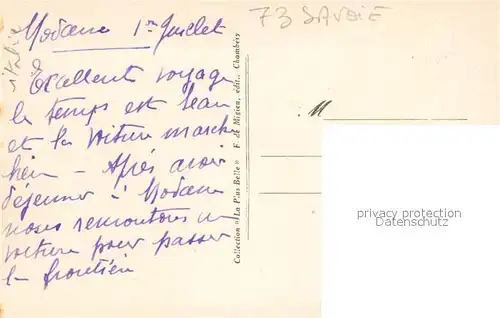 Modane 1er Juillet
Italie
Excellent voyage
le temps est beau
et la voiture marche
bien - Après avoir
déjeuner à Modane
nous remontons en
voiture pour passer
la frontière
Collection « La Plus Belle » F. de Migieu, édit., Chambéry
73 SAVOIE
M
privacy protection
Datenschutz